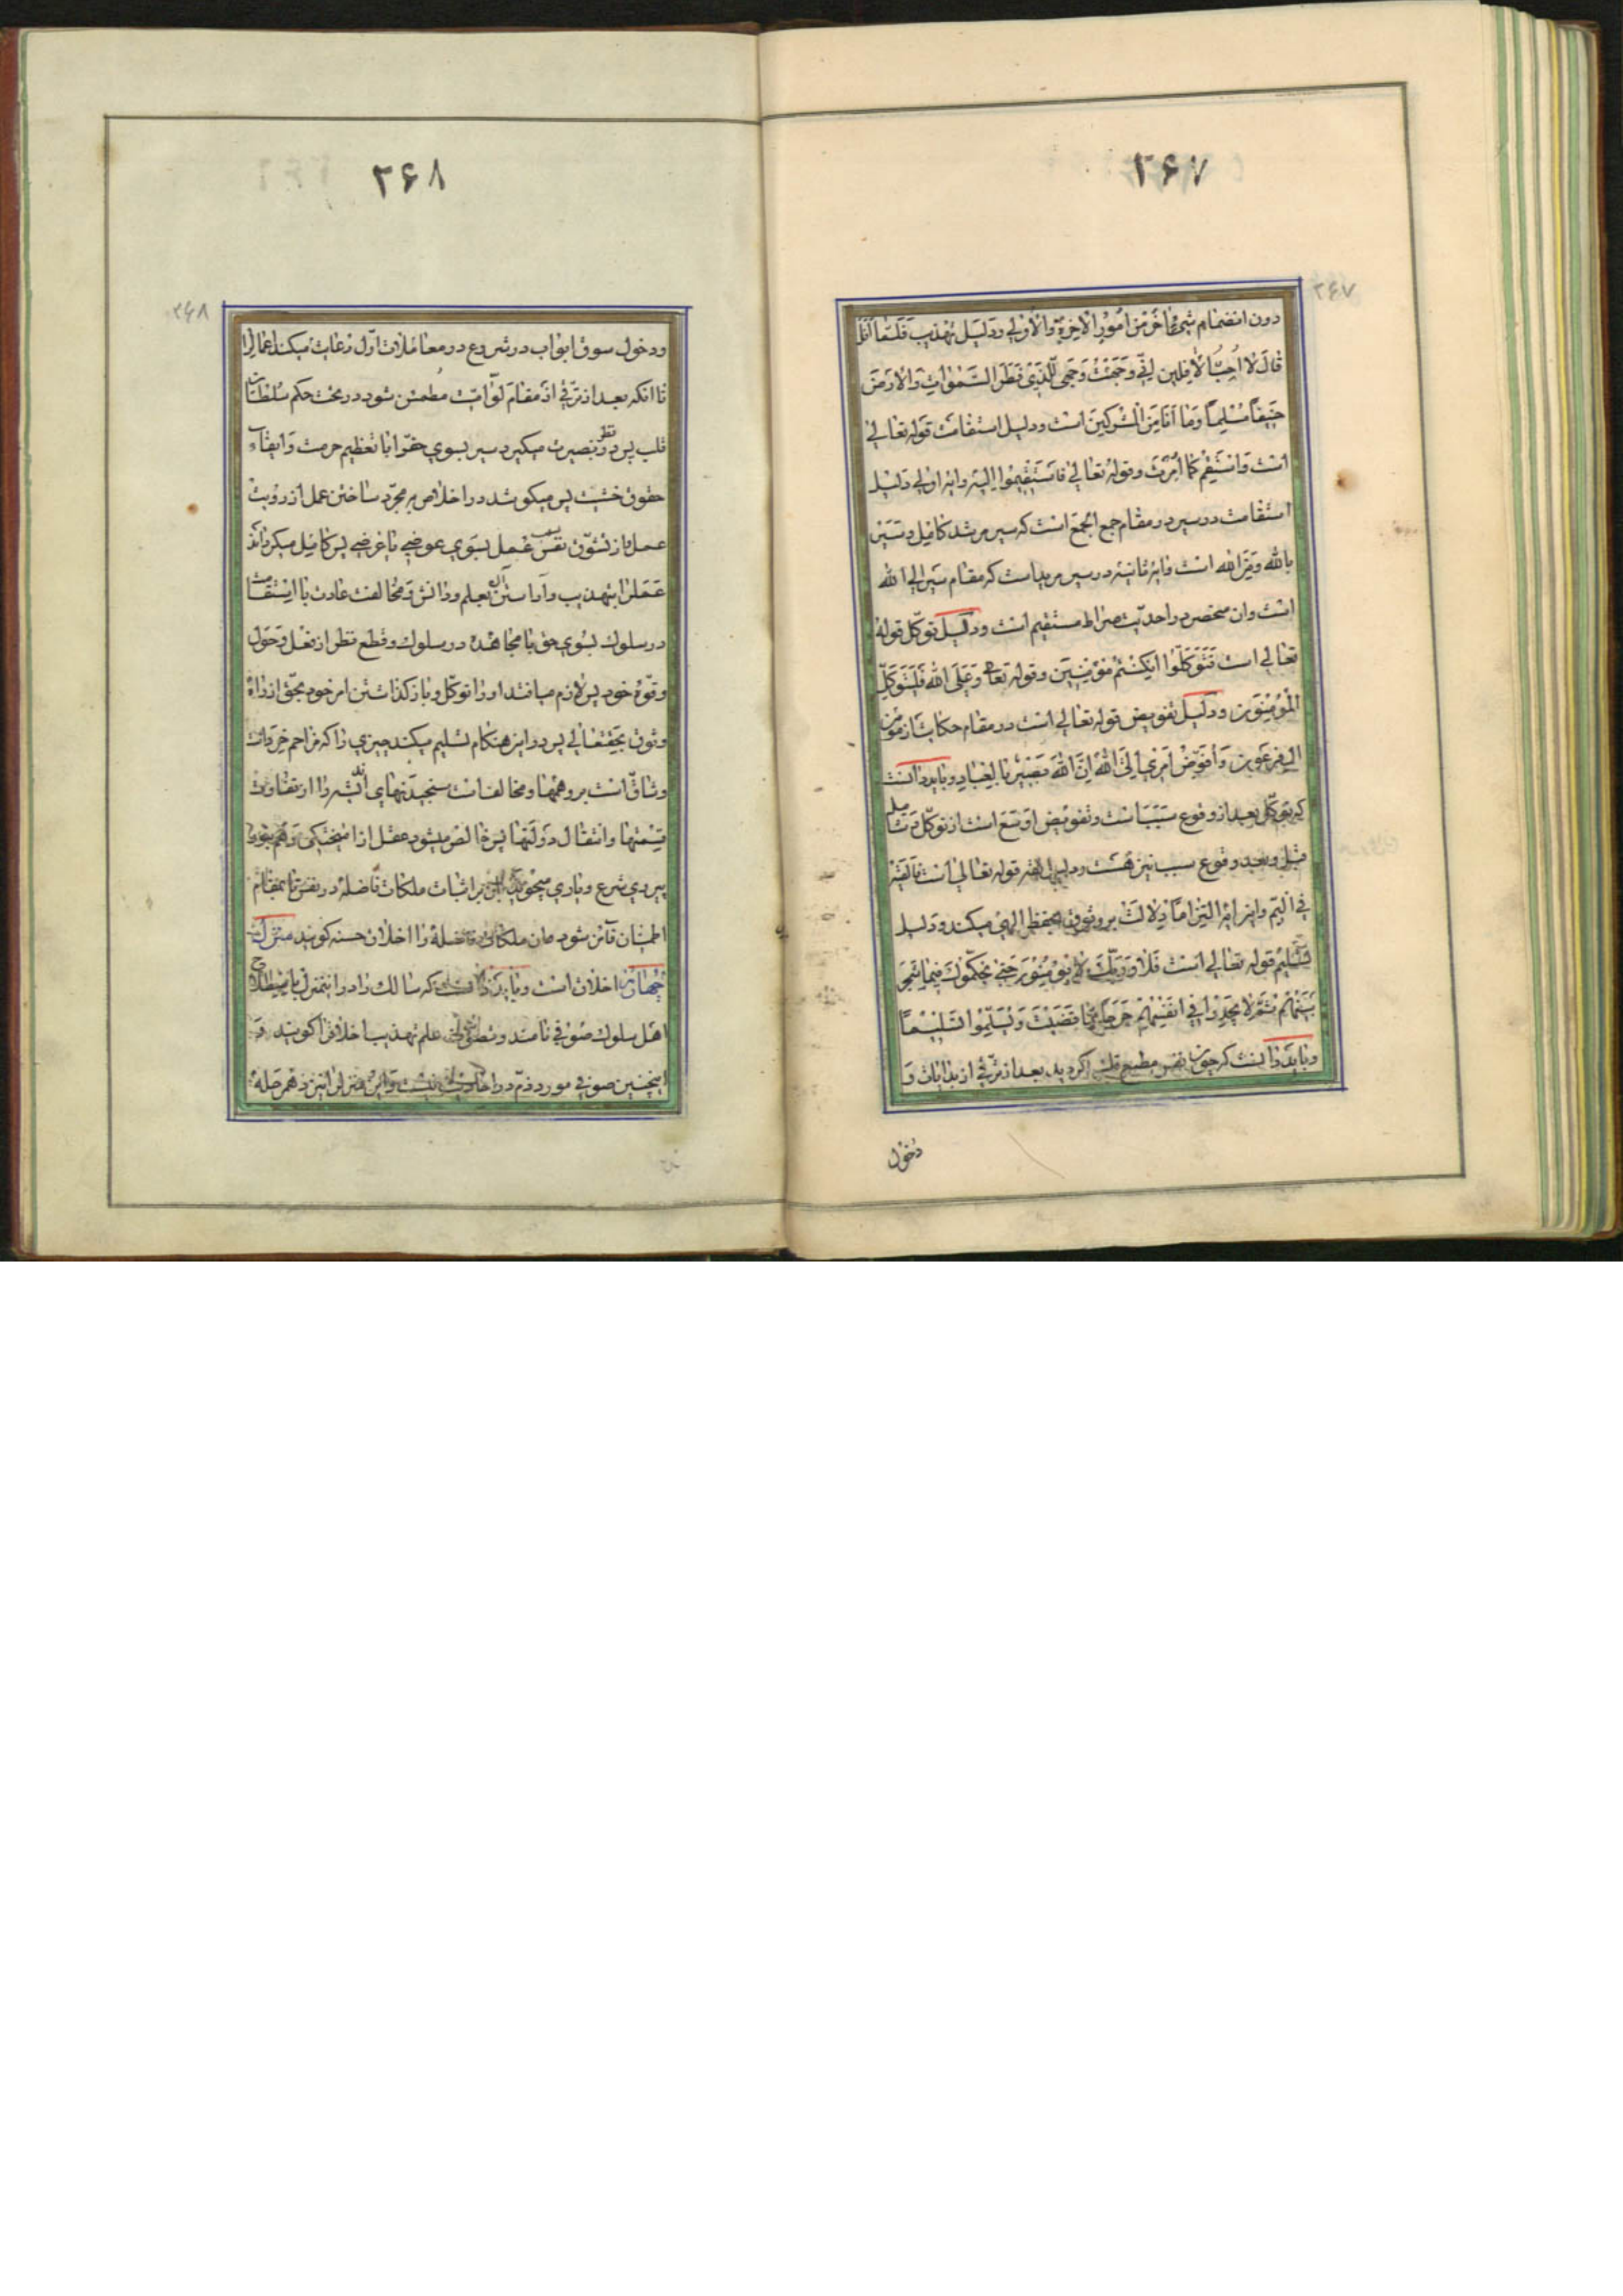 ۲۶۷
۲۶۷
دون انضمام شیء آخر من امور الآخرة والاولی ودلیل تهذیب فلما افل
قال لا احب الافلین انی وجهت وجهی للذی فطر السموات والارض
حنیفا مسلما وما انا من المشرکین است ودلیل استقامت قوله تعالی
است واستقم کما امرت وقوله تعالی فاستقیموا الیه وایه اولی دلیل
استقامت در سیر در مقام جمع الجمع است که سیر مرشد کامل وسیر
بالله وفی الله است وایه ثانیه در سیر مرید است که مقام سیر الی الله
است وان منحصر در احدیت صراط مستقیم است ودلیل توکل قوله
تعالی است فتوکلوا ان کنتم مؤمنین وقوله تعا وعلی الله فلیتوکل
المؤمنون ودلیل تفویض قوله تعالی است در مقام حکایت از مؤمن
ال فرعون وافوض امری الی الله ان الله بصیر بالعباد وباید دانست
که توکل بعد از وقوع سبب است وتفویض اوسع است از توکل
قبل وبعد وقوع سبب نیز هست ودلیل ثقه قوله تعالی است فالقیه
فی الیم واین ایه التزاما دلالت بر وثوق بحفظ الهی میکند ودلیل
تسلیم قوله تعالی است فلا وربک لا یؤمنون حتی یحکموک فیما شجر
بینهم ثم لا یجدوا فی انفسهم حرجا مما قضیت ویسلموا تسلیما
وباید دانست که چون نفس مطیع قلب گردید بعد از ترقی از بدایات و
دخول
۲۶۸
۲۶۸
ودخول سوق ابواب در شروع در معاملات اول رعایت میکند اعمال را
تا انکه بعد از ترقی از مقام لوامیت مطمئن شود در تحت حکم سلطان
قلب پس نظر بصیرت میکیرد سیر بسوی حق را با تعظیم حرمت وایفاء
حقوق پس میکوشد در اخلاص به مجرد ساختن عمل از رؤیت
عمل باز تشوق نفس بسبب عمل بسوی عوضی یا غرضی پس کامل میکرداند
عمل را بتهذیب وآراستن آن بعلم ودانش ومخالفت عادت با استقامت
در سلوک بسوی حق با مجاهده در سلوک وقطع نظر از فعل وحول
وقوة خود پس لازم میافتد او را توکل وباز کذاشتن امر خود بحق از راه
وثوق بحقتعالی پس در این هنکام تسلیم میکند چیزی را که مزاحم خرد است
وشاق است بر وهمها ومخالف است سنجیدنهای اندیشه را از تفاوت
قسمتها وانتقال دولتها پس خالص میشود عقل از وهم بقوة
پیروی شرع ویاری میجوید بر اثبات ملکات فاضله در نفس تا بمقام
اطمینان فائز شود وان ملکات فاضله را اخلاق حسنه کویند منزل
چهارم اخلاق است وباید دانست که سالک را در اینمنزل باصطلاح
اهل سلوک صوفی نامند علم تهذیب اخلاق را کویند و
اینچنین صوفی مورد ذم در احادیث نیست واین منزل را نیز ده مرحله